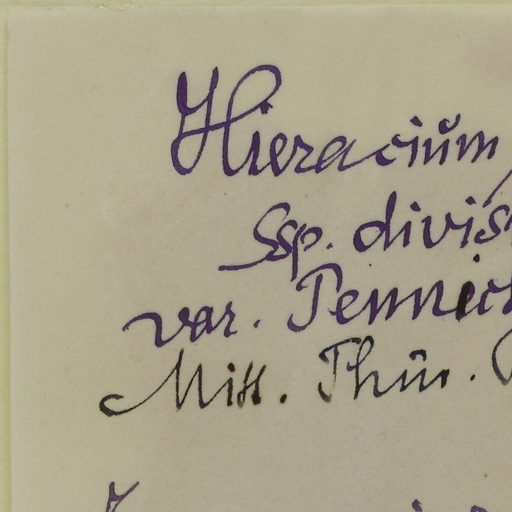 Hieracium
Ssp. divis
var. Pennich
Mitt. Thür.